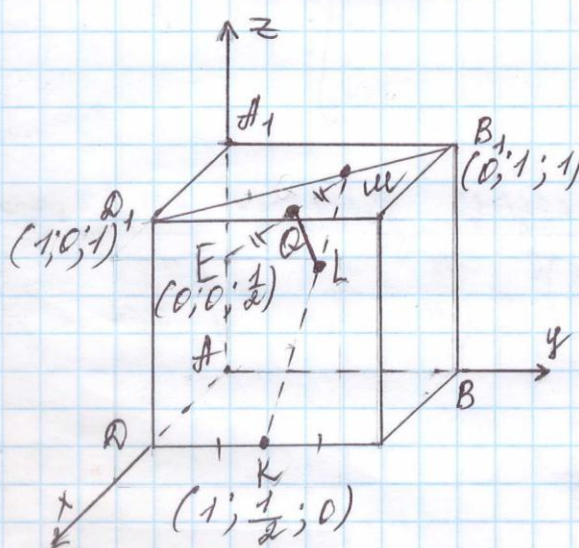 z
A₁
B₁
(0; 1; 1)
D₁
M
(1; 0; 1)
E
Q
L
(0; 0; 1/2)
A
y
B
D
K
x
(1; 1/2; 0)